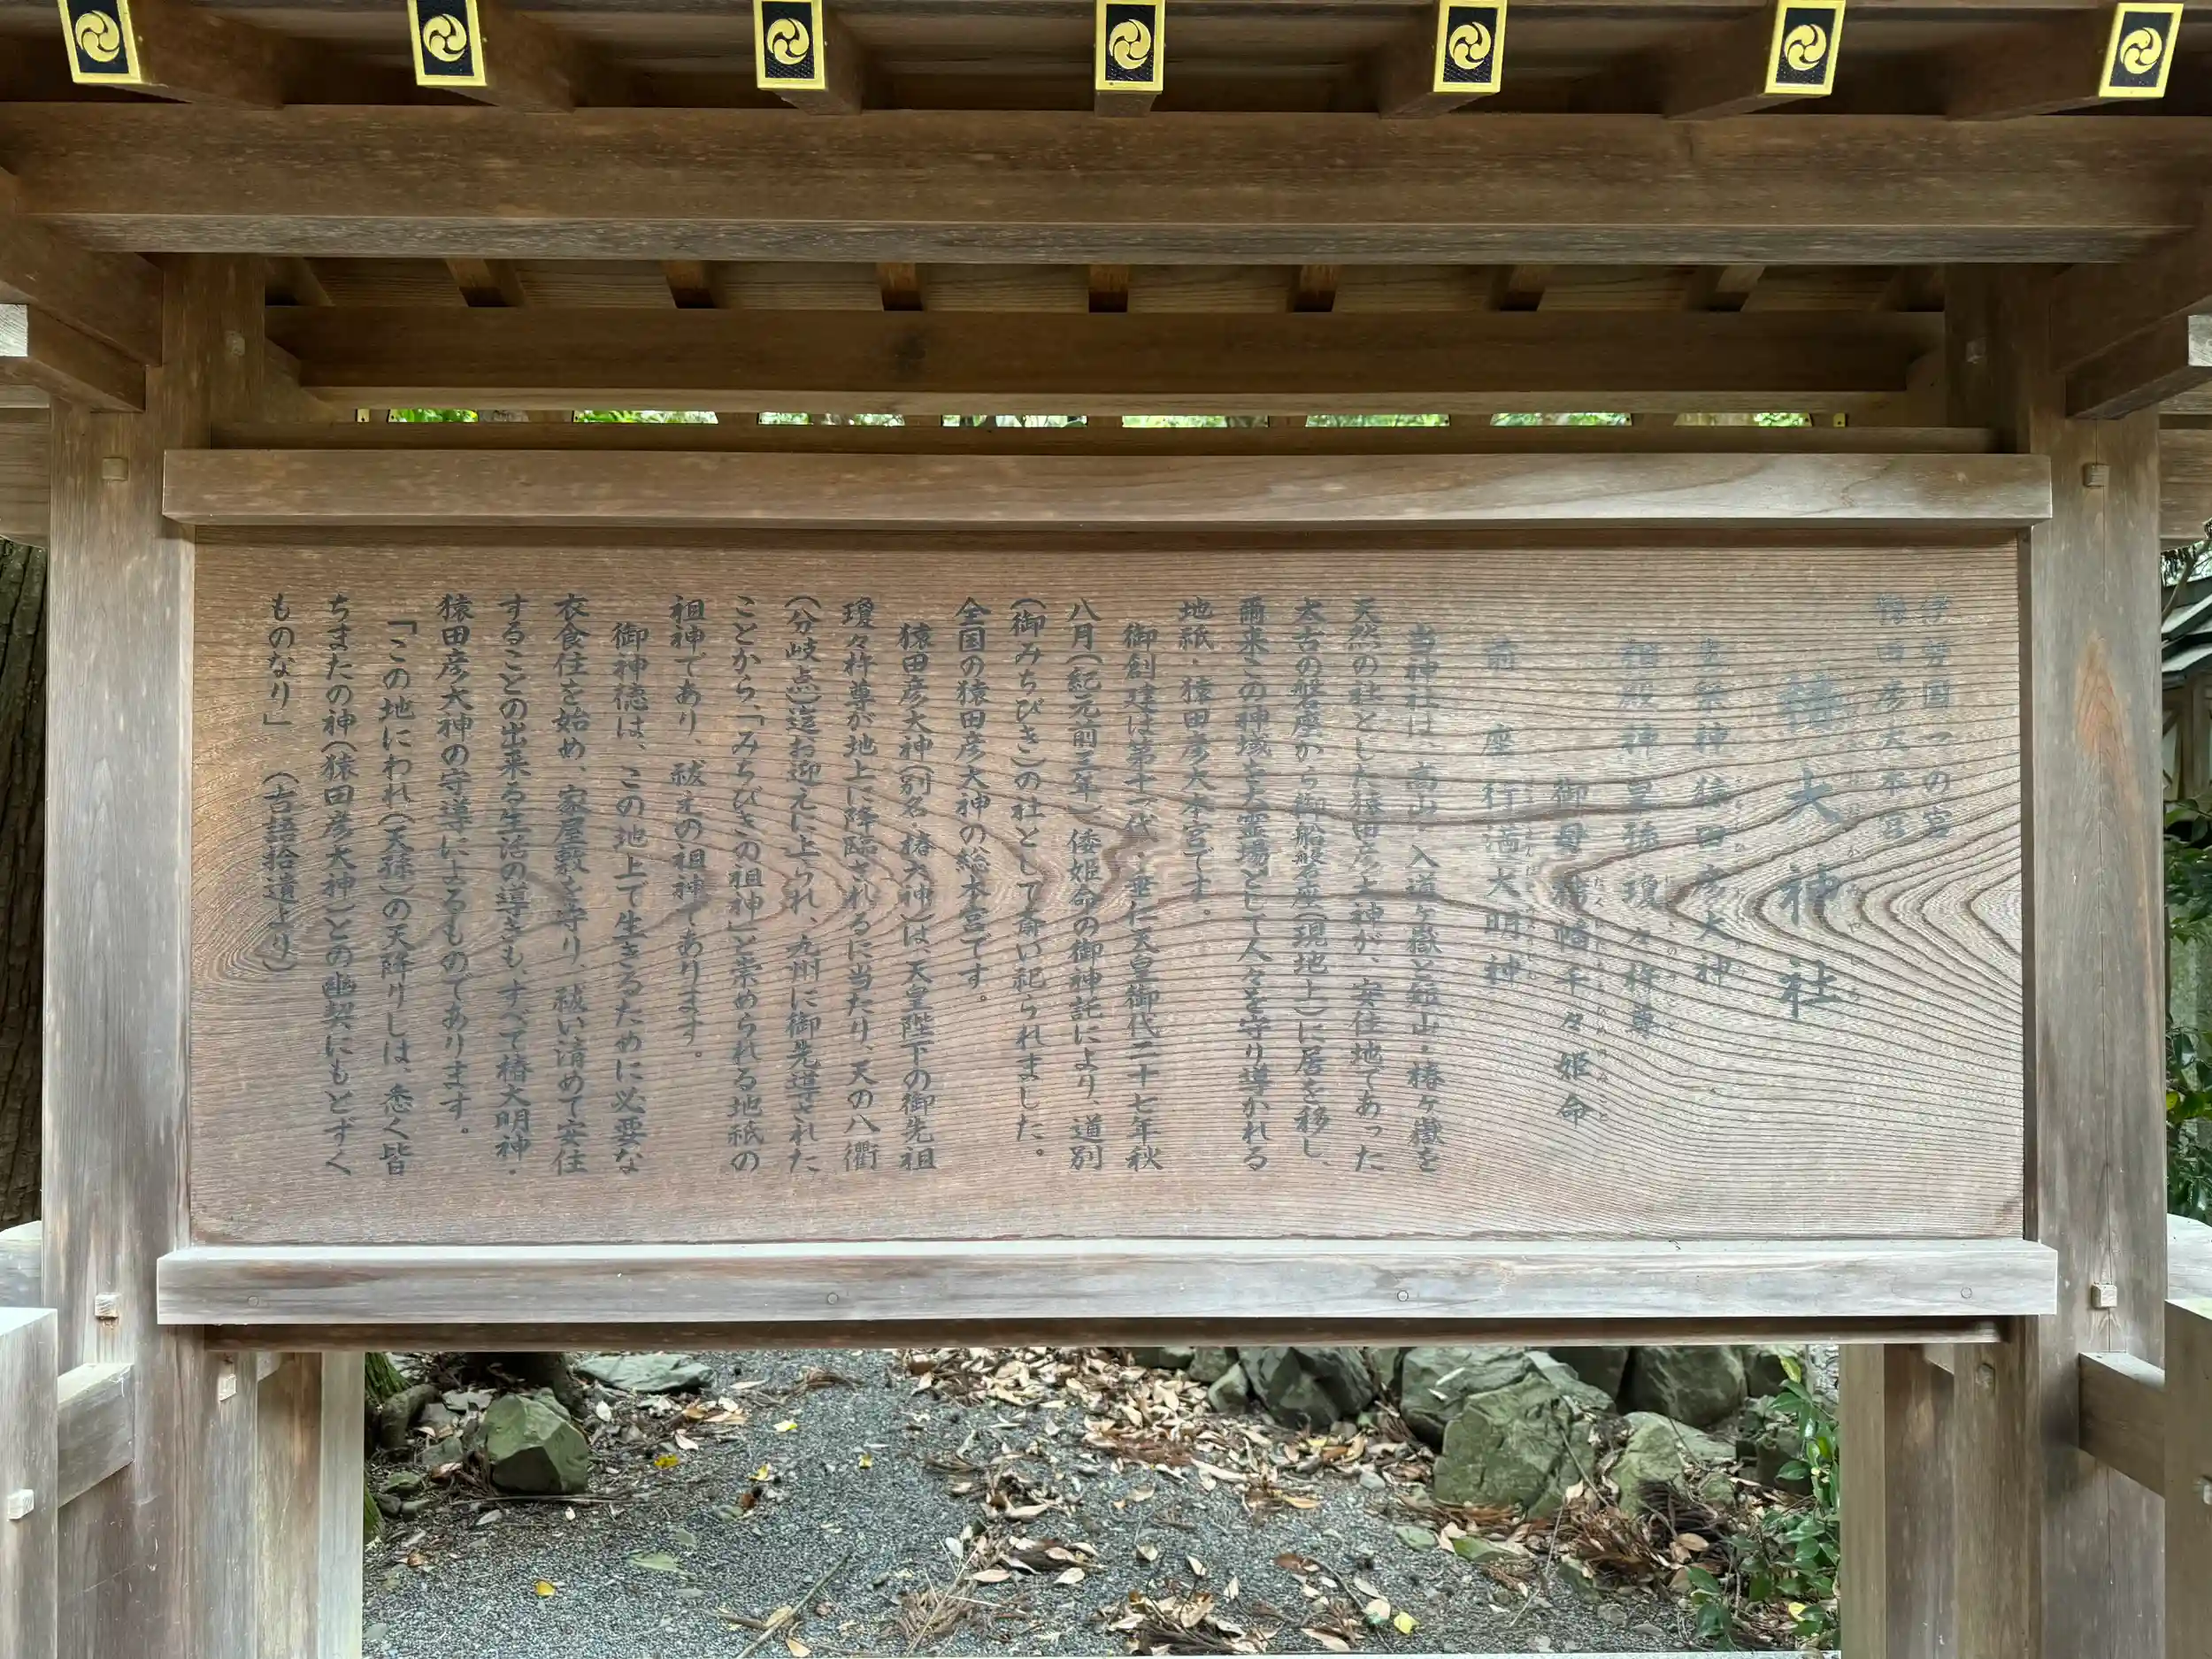 伊勢国一の宮
猿田彦大本宮
椿大神社
主祭神 猿田彦大神
相殿神 皇孫瓊々杵尊
御母 栲幡千々姫命
前座 行満大明神
当神社は、高山 入道ヶ嶽と短山・椿ヶ嶽を
天然の社とした猿田彦大神が、安住地であった
太古の磐座から御船磐座(現地上)に居を移し、
爾来この神域を大霊場として人々を守り導かれる
地祇・猿田彦大本宮です。
御創建は第十一代・垂仁天皇御代二十七年秋
八月(紀元前三年)倭姫命の御神託により、道別
(御みちびき)の社として斎い祀られました。
全国の猿田彦大神の総本宮です。
猿田彦大神(別名 椿大神)は、天皇陛下の御先祖
瓊々杵尊が地上に降臨されるに当たり、天の八衢
(分岐点)迄お迎えに上られ、九州に御先導された
ことから、「みちびきの祖神」と崇められる地祇の
祖神であり、祓えの祖神であります。
御神徳は、この地上で生きるために必要な
衣食住を始め、家屋敷を守り、祓い清めて安住
することの出来る生活の導きも、すべて椿大明神・
猿田彦大神の守導によるものであります。
「この地にわれ(天孫)の天降りしは、悉く皆
ちまたの神(猿田彦大神)との幽契にもとずく
ものなり」 (古語拾遺より)